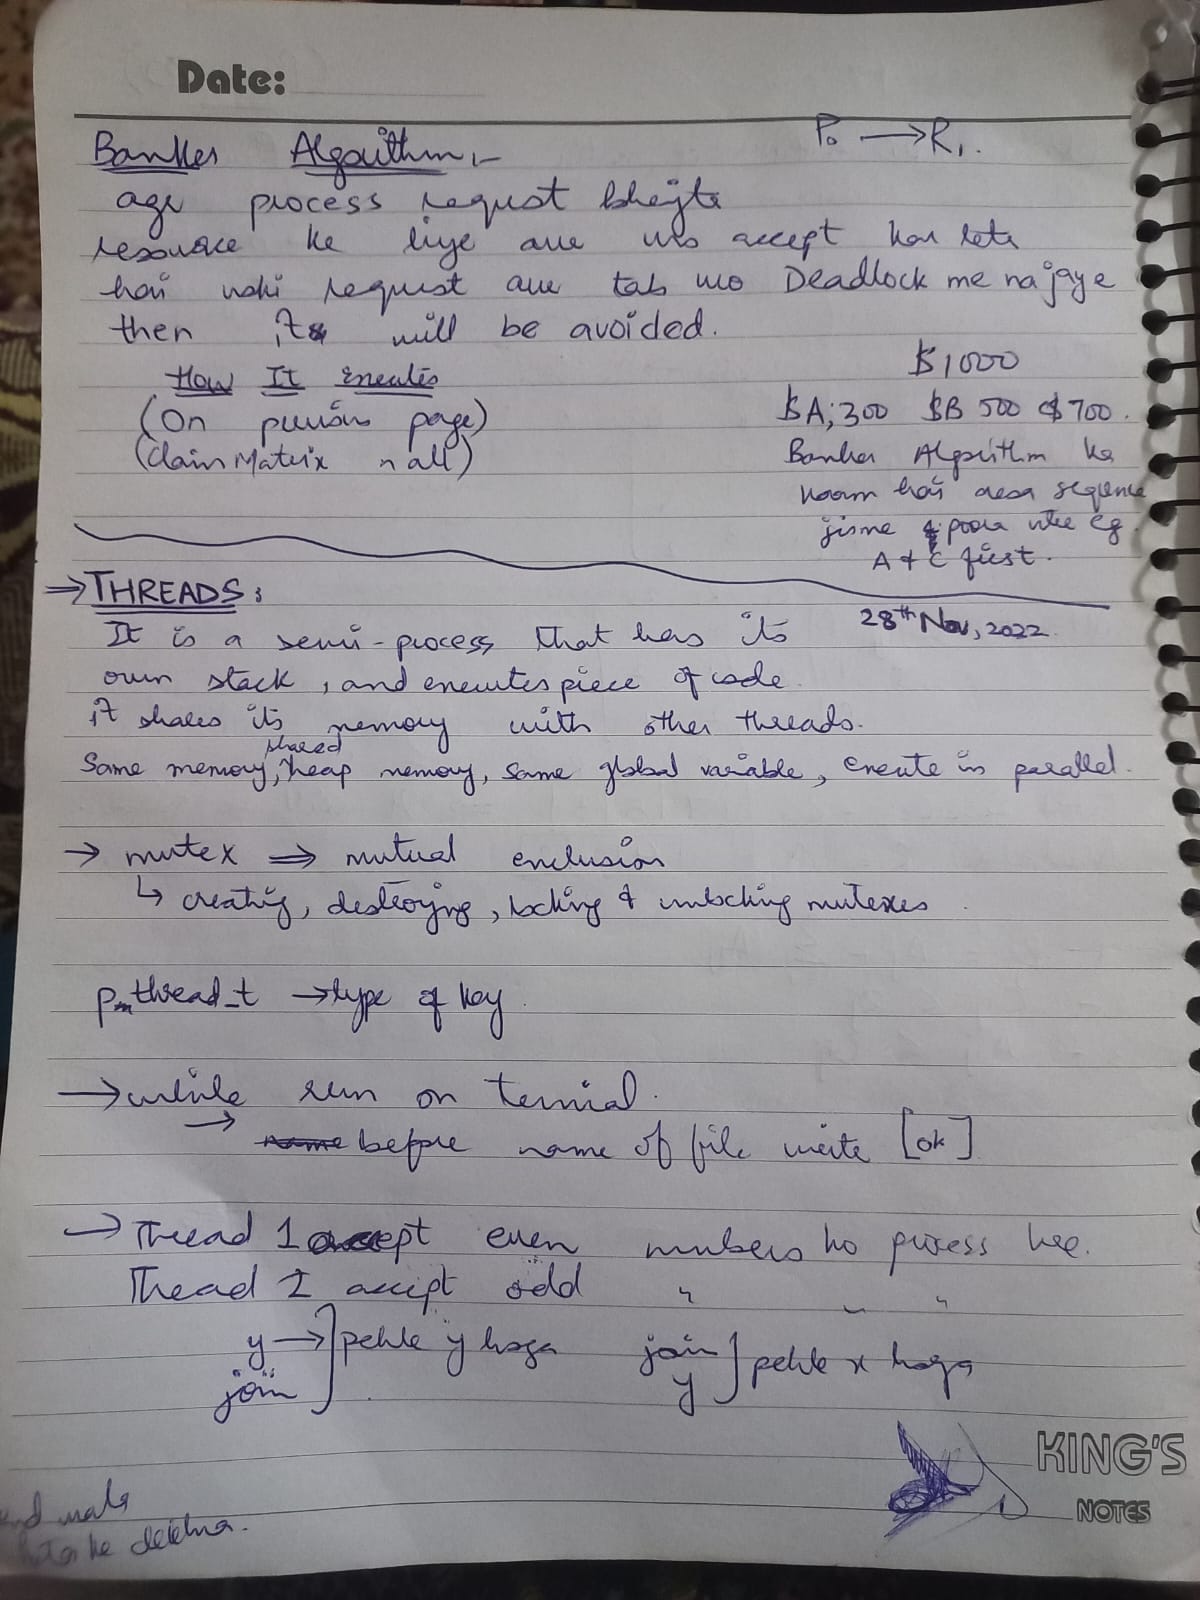 Date:
P₀ → R₁.
Banker Algorithm :-
agr process request bhejta
resource ke liye aur wo accept kar leta
hai uski request aur tab wo Deadlock me na jaye
then it will be avoided.
How It Executes
(On previous page)
(Claim Matrix n all)
$1000
$A; 300 $B 500 C$ 700.
Banker Algorithm ka
kaam hai aesa seqence
jisme poora utre eg.
A & C first.
⇒ THREADS:
28th Nov, 2022
It is a semi-process that has its
own stack, and executes piece of code.
it shares its memory with other threads.
Same memory, shared heap memory, same global variable, execute in parallel.
→ mutex ⇒ mutual exclusion
↳ creating, destroying, locking & unlocking mutexes.
p_thread_t → type of key.
→ while run on terminal.
→ before name of file write [ok]
→ Thread 1 accept even numbers ko process kre.
Thread 2 accept odd " " "
y → ] pehle y hoga
join
join ] pehle x hoga
y
KING'S
NOTES
ke dekhna.